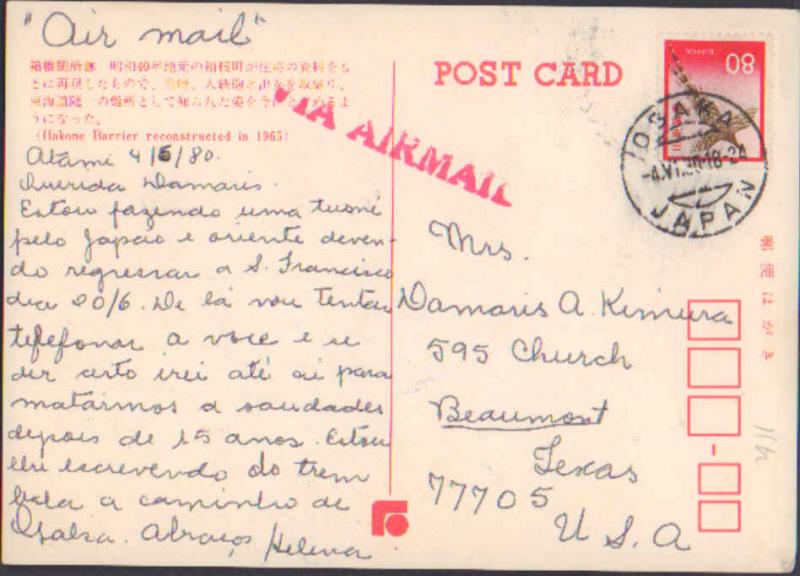 "Air mail"
箱根関所跡 昭和40年地元の箱根町が往時の資料をも
とに再現したもので、当時、入鉄砲と出女を取締り、
東海道随一の難所として知られた姿を今に
うになった。
(Hakone Barrier reconstructed in 1965)
Atami 4/6/80.
Querida Damaris.
Estou fazendo uma tusné
pelo Japão e oriente deven-
do regressar a S. Francisco
dia 20/6. De lá vou tentar
telefonar a voce e se
der certo irei até aí para
matarmos a saudades
depois de 15 anos. Estou
lhe escrevendo do trem
bala a caminho de
Osaka. Abraços Helena
POST CARD
VIA AIRMAIL
NIPPON
80
IOSAKA
-4.VI.80.18-24
JAPAN
Mrs.
Damaris A. Kimura
595 Church
Beaumont
Texas
77705
U.S.A
郵便はがき